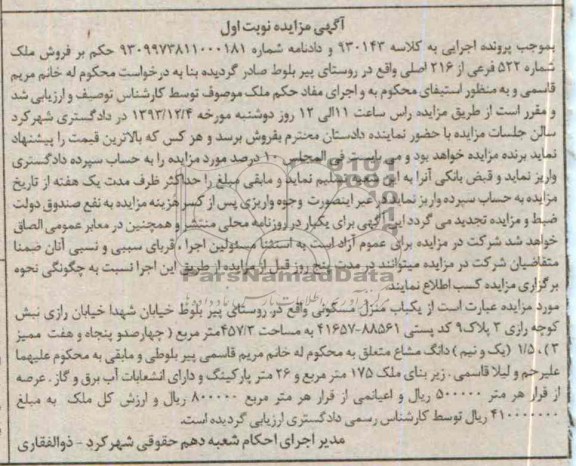 آگهی مزایده نوبت اول
بموجب پرونده اجرایی به کلاسه ۹۳۰۱۴۳ و دادنامه شماره ۹۳۰۹۹۷۳۸۱۱۰۰۰۱۸۱ حکم بر فروش ملک
شماره ۵۲۲ فرعی از ۲۱۶ اصلی واقع در روستای پیر بلوط صادر گردیده بنا به درخواست محکوم له خانم مریم
قاسمی و به منظور استیفای محکوم به و اجرای مفاد حکم ملک موصوف توسط کارشناس توصیف و ارزیابی شد
و مقرر است از طریق مزایده راس ساعت ۱۱الی ۱۲ روز دوشنبه مورخه ۱۳۹۳/۱۲/۴ در دادگستری شهرکرد
سالن جلسات مزایده با حضور نماینده دادستان محترم بفروش برسد و هر کس که بالاترین قیمت را پیشنهاد
نماید برنده مزایده خواهد بود و می بایست فی المجلس ۱۰ درصد مورد مزایده را به حساب سپرده دادگستری
واریز نماید و قبض بانکی آنرا به این تسلیم نماید و مابقی مبلغ را حداکثر ظرف مدت یک هفته از تاریخ
مزایده به حساب سپرده واریز نماید در غیر اینصورت وجوه واریزی پس از کسر هزینه مزایده به نفع صندوق دولت
ضبط و مزایده تجدید می گردد این آگهی برای یکبار در روزنامه محلی منتشر و همچنین در معابر عمومی الصاق
خواهد شد شرکت در مزایده برای عموم آزاد است به استثنا مسئولین اجرا ، قربای سببی و نسبی آنان ضمنا
متقاضیان شرکت در مزایده میتوانند در مدت پنج روز قبل از مزایده از طریق این اجرا نسبت به چگونگی نحوه
برگزاری مزایده کسب اطلاع نمایند.
ParsNamadData
مورد مزایده عبارت است از یکباب منزل مسکونی واقع در روستای پیر بلوط خیابان شهدا خیابان رازی نبش
کوچه رازی ۳ پلاک۹ کد پستی ۸۸۵۶۱-۴۱۶۵۷ به مساحت ۴۵۷/۳ متر مربع ( چهارصدو پنجاه و هفت ممیز
۳ ) ، ۱/۵ (یک و نیم ) دانگ مشاع متعلق به محکوم له خانم مریم قاسمی پیر بلوطی و مابقی به محکوم علیهما
علیرحم و لیلا قاسمی . زیر بنای ملک ۱۷۵ متر مربع و ۲۶ متر پارکینگ و دارای انشعابات آب برق و گاز . عرصه
از قرار هر متر ۵۰۰۰۰۰ ریال و اعیانمی از قرار هر متر مربع ۸۰۰۰۰۰ ریال و ارزش کل ملک به مبلغ
۴۱۰۰۰۰۰۰۰ ریال توسط کارشناس رسمی دادگستری ارزیابی گردیده است.
مدیر اجرای احکام شعبه دهم حقوقی شهر کرد - ذوالفقاری